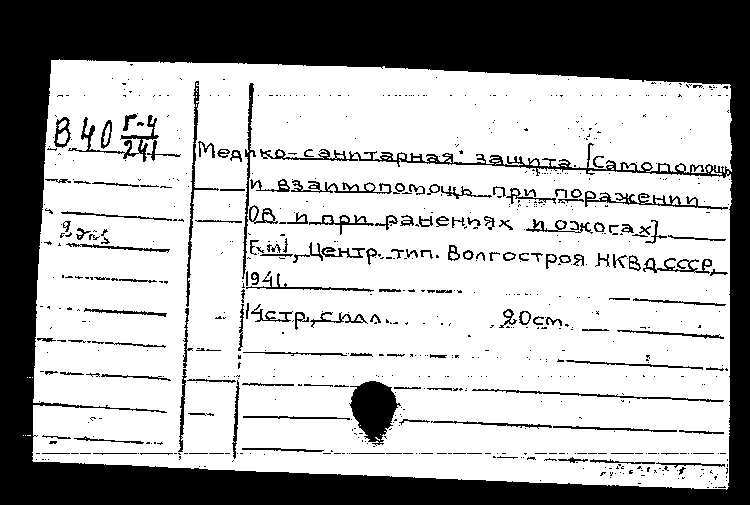 В 40 Г-4
241
Медико-санитарная защита. [Самопомощь
и взаимопомощь при поражении
ОВ и при ранениях и ожогах]
2 экз
[Б.м.], Центр. тип. Волгостроя НКВД СССР,
1941.
14стр., с илл. 20см.